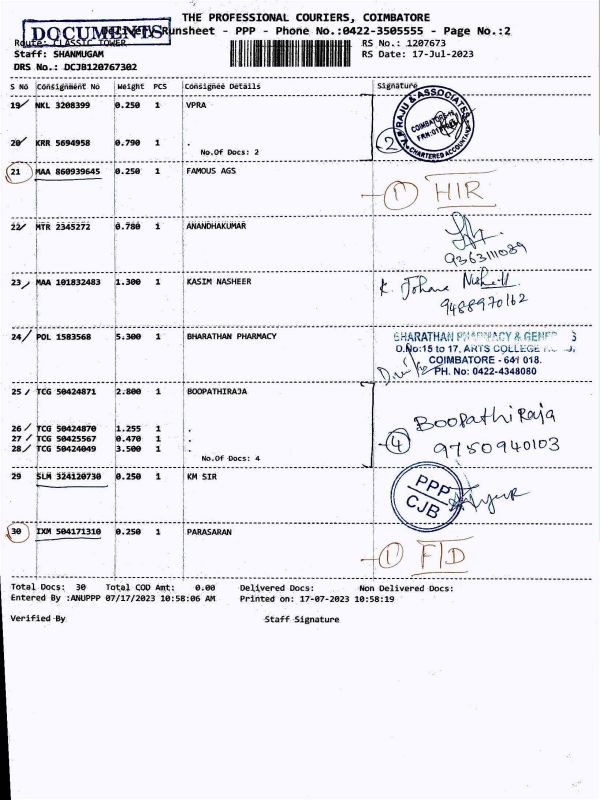 THE PROFESSIONAL COURIERS, COIMBATORE
DOCUMENTS Runsheet - PPP - Phone No.:0422-3505555 - Page No.:2
Route: CLASSIC TOWER RS No.: 1207673
Staff: SHANMUGAM RS Date: 17-Jul-2023
DRS No.: DCJB120767302
S No Consignment No Weight PCS Consignee Details Signature
19 NKL 3208399 0.250 1 VPRA
RAJU & ASSOCIATES
COIMBATORE
CHARTERED ACCOUNTANTS
20 KRR 5694958 0.790 1 .
No.Of Docs: 2
2
21 MAA 860939645 0.250 1 FAMOUS AGS
1 HIR
22 MTR 2345272 0.780 1 ANANDHAKUMAR
9363111089
23 MAA 101832483 1.300 1 KASIM NASHEER
K.
9488970162
24 POL 1583568 5.300 1 BHARATHAN PHARMACY
BHARATHAN PHARMACY & GENER
D.No:15 to 17, ARTS COLLEGE
COIMBATORE - 641 018.
PH. No: 0422-4348080
25 TCG 50424871 2.800 1 BOOPATHIRAJA
26 TCG 50424870 1.255 1 .
27 TCG 50425567 0.470 1 .
28 TCG 50424049 3.500 1 .
No.Of Docs: 4
4 BoopathiRaja
9750940103
29 SLM 324120730 0.250 1 KM SIR
PPP
CJB
30 IXM 504171310 0.250 1 PARASARAN
1 F/D
Total Docs: 30 Total COD Amt: 0.00 Delivered Docs: Non Delivered Docs:
Entered By :ANUPPP 07/17/2023 10:58:06 AM Printed on: 17-07-2023 10:58:19
Verified By Staff Signature